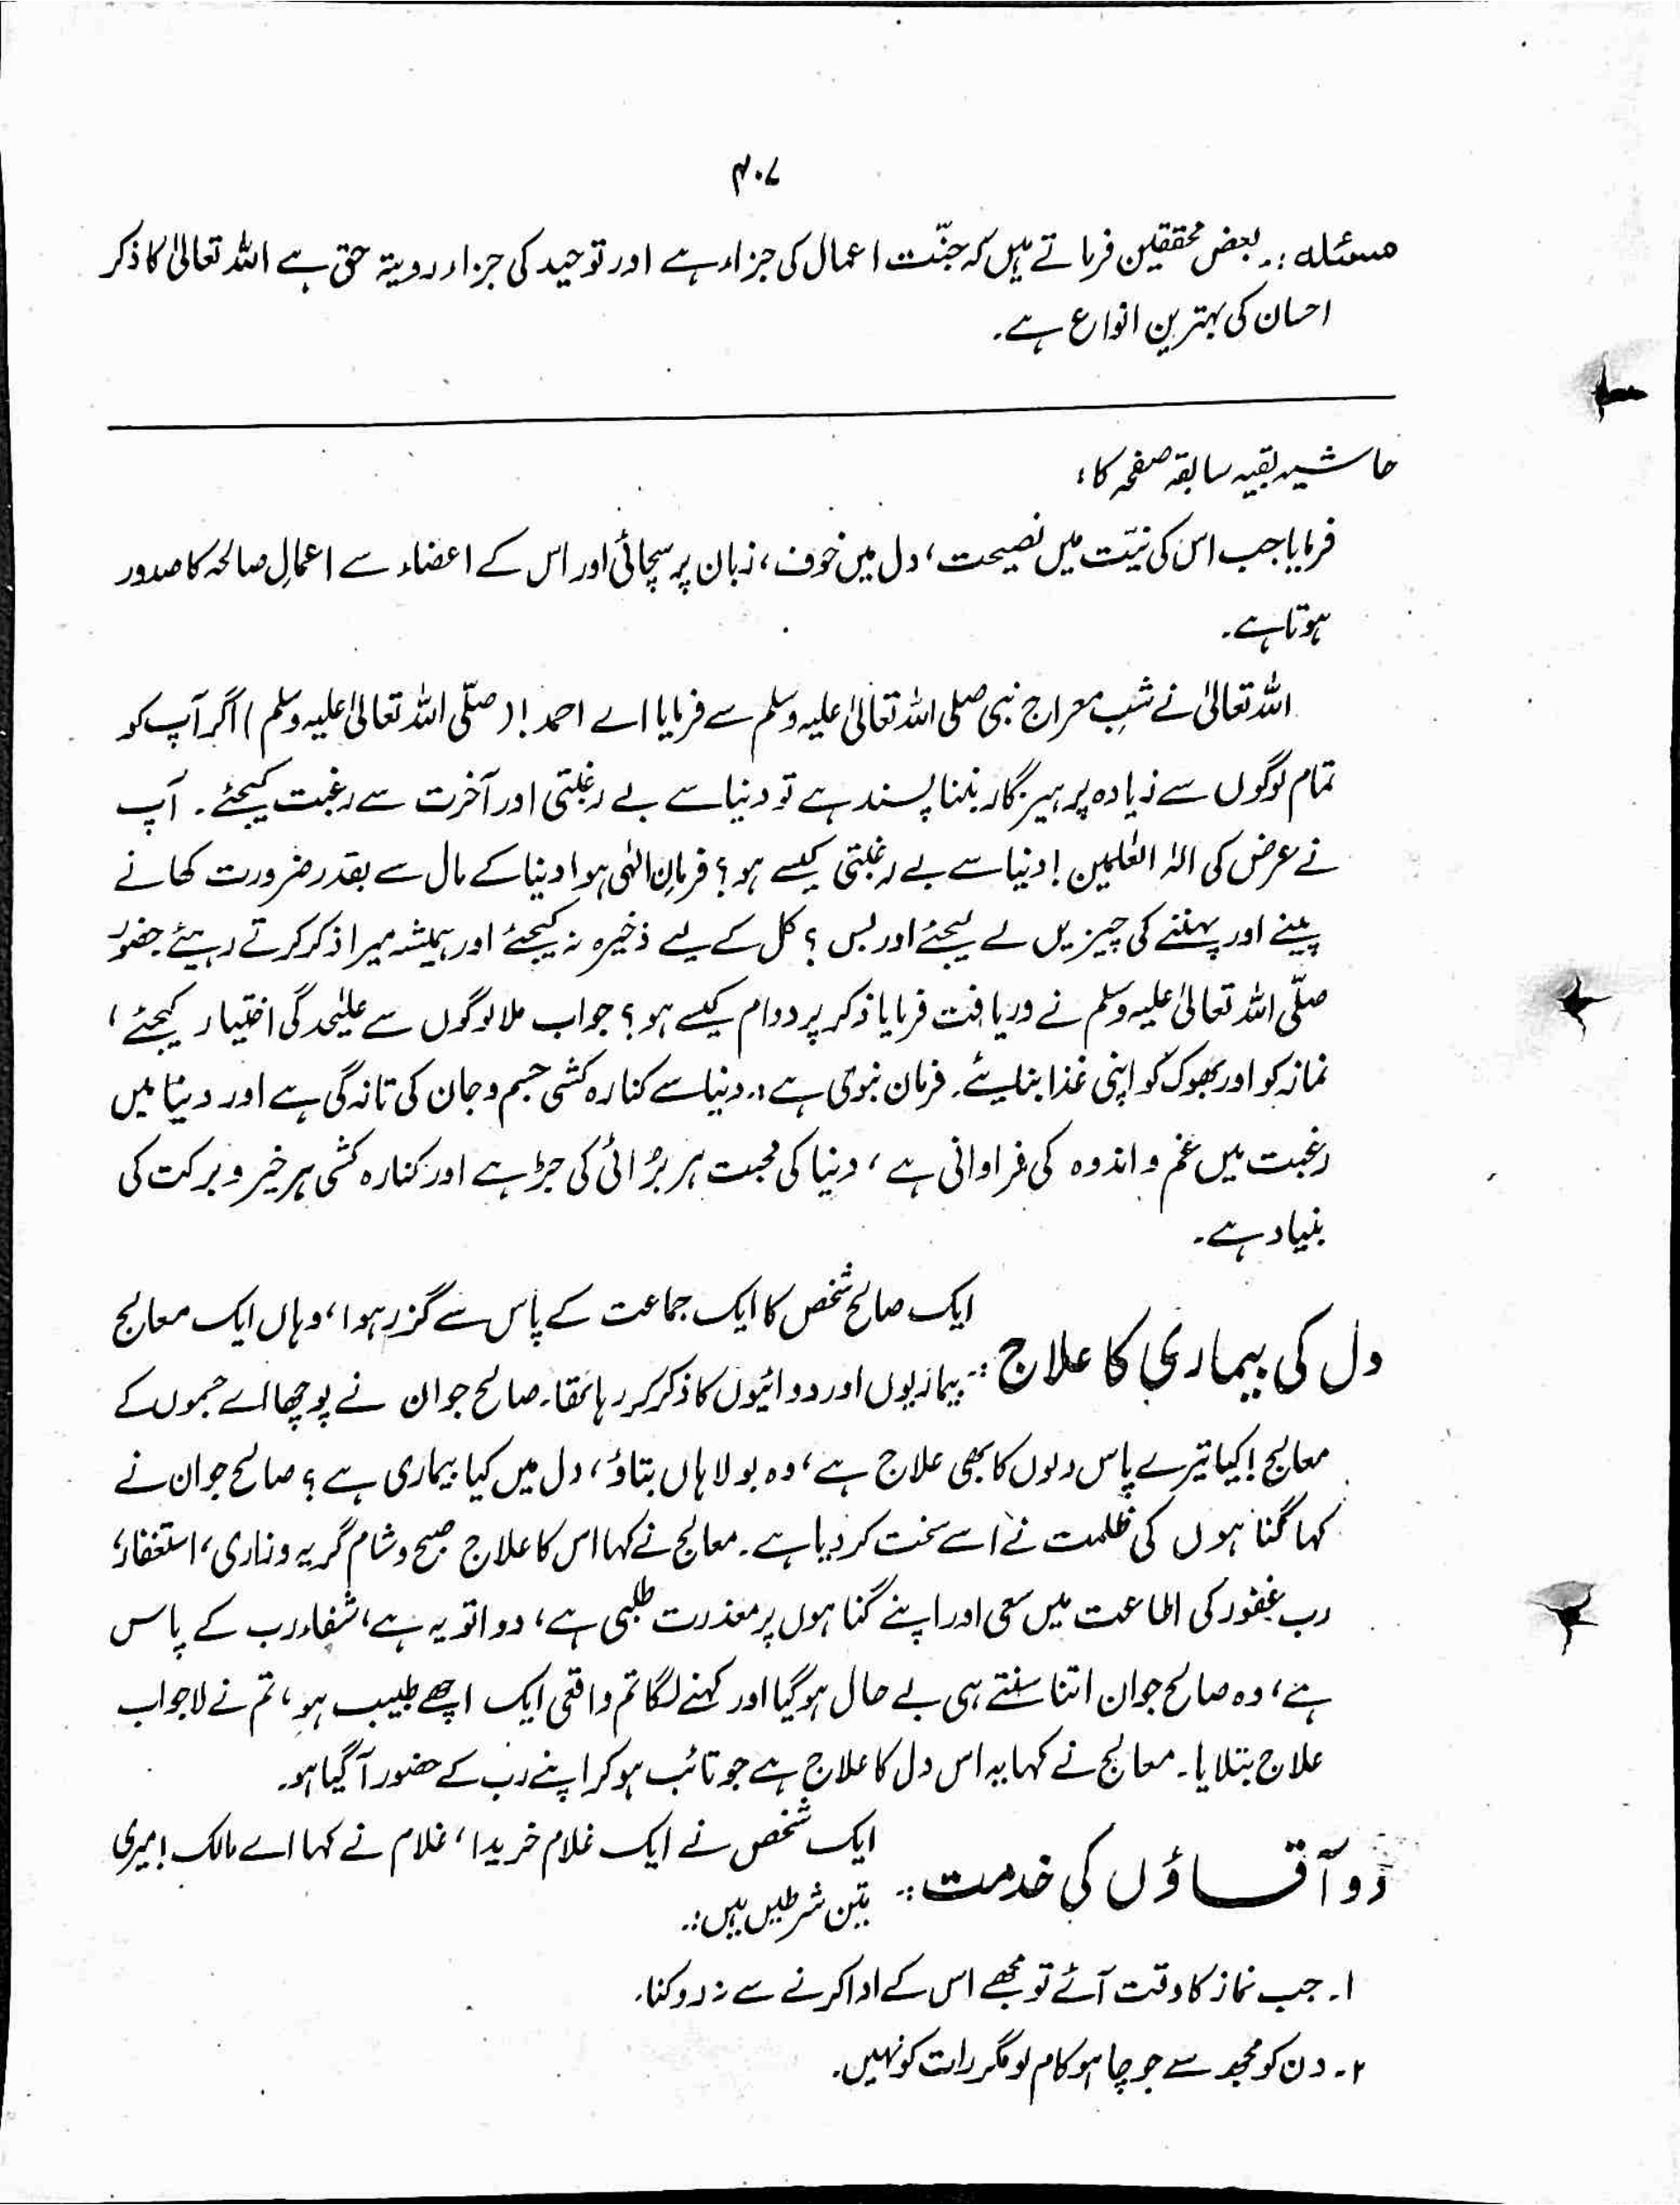 ۴۰۷
مسئلہ :۔ بعض محققین فرماتے ہیں کہ جنّت اعمال کی جزاء ہے اور توحید کی جزاء رویۃ حق ہے اللہ تعالیٰ کا ذکر
احسان کی بہترین انواع ہے۔
حاشیہ بقیہ سابقہ صفحہ کا:
فرمایا جب اس کی نیّت میں نصیحت، دل میں خوف، زبان پر سچائی اور اس کے اعضاء سے اعمالِ صالحہ کا صدور
ہوتا ہے۔
اللہ تعالیٰ نے شبِ معراج نبی صلی اللہ تعالیٰ علیہ وسلم سے فرمایا اے احمد! (صلّی اللہ تعالیٰ علیہ وسلم) اگر آپ کو
تمام لوگوں سے زیادہ پرہیزگار بننا پسند ہے تو دنیا سے بے رغبتی اور آخرت سے رغبت کیجئے۔ آپ
نے عرض کی الٰہ العٰلمین! دنیا سے بے رغبتی کیسے ہو؟ فرمانِ الٰہی ہوا دنیا کے مال سے بقدر ضرورت کھانے
پینے اور پہننے کی چیزیں لے لیجئے اور بس؟ کل کے لیے ذخیرہ نہ کیجئے اور ہمیشہ میرا ذکر کرتے رہیئے حضور
صلّی اللہ تعالیٰ علیہ وسلم نے دریافت فرمایا ذکر پر دوام کیسے ہو؟ جواب ملا لوگوں سے علیٰحدگی اختیار کیجئے،
نماز کو اور بھوک کو اپنی غذا بنایئے۔ فرمان نبوی ہے:۔ دنیا سے کنارہ کشی جسم و جان کی تازگی ہے اور دنیا میں
رغبت میں غم و اندوہ کی فراوانی ہے، دنیا کی محبت ہر بُرائی کی جڑ ہے اور کنارہ کشی ہر خیر و برکت کی
بنیاد ہے۔
دل کی بیماری کا علاج :۔ ایک صالح شخص کا ایک جماعت کے پاس سے گزر ہوا، وہاں ایک معالج
بیماریوں اور دوائیوں کا ذکر کر رہا تھا۔ صالح جوان نے پوچھا اے جسموں کے
معالج! کیا تیرے پاس دلوں کا بھی علاج ہے، وہ بولا ہاں بتاؤ، دل میں کیا بیماری ہے؟ صالح جوان نے
کہا گناہوں کی ظلمت نے اسے سخت کر دیا ہے۔ معالج نے کہا اس کا علاج صبح و شام گریہ و زاری، استغفار،
رب غفور کی اطاعت میں سعی اور اپنے گناہوں پر معذرت طلبی ہے، دوا تو یہ ہے، شفاء رب کے پاس
ہے، وہ صالح جوان اتنا سنتے ہی بے حال ہو گیا اور کہنے لگا تم واقعی ایک اچھے طبیب ہو، تم نے لاجواب
علاج بتلایا۔ معالج نے کہا یہ اس دل کا علاج ہے جو تائب ہو کر اپنے رب کے حضور آ گیا ہو۔
دو آقاؤں کی خدمت :۔ ایک شخص نے ایک غلام خریدا، غلام نے کہا اے مالک! میری
تین شرطیں ہیں :۔
۱۔ جب نماز کا وقت آئے تو مجھے اس کے ادا کرنے سے نہ روکنا۔
۲۔ دن کو مجھ سے جو چاہو کام لو مگر رات کو نہیں۔